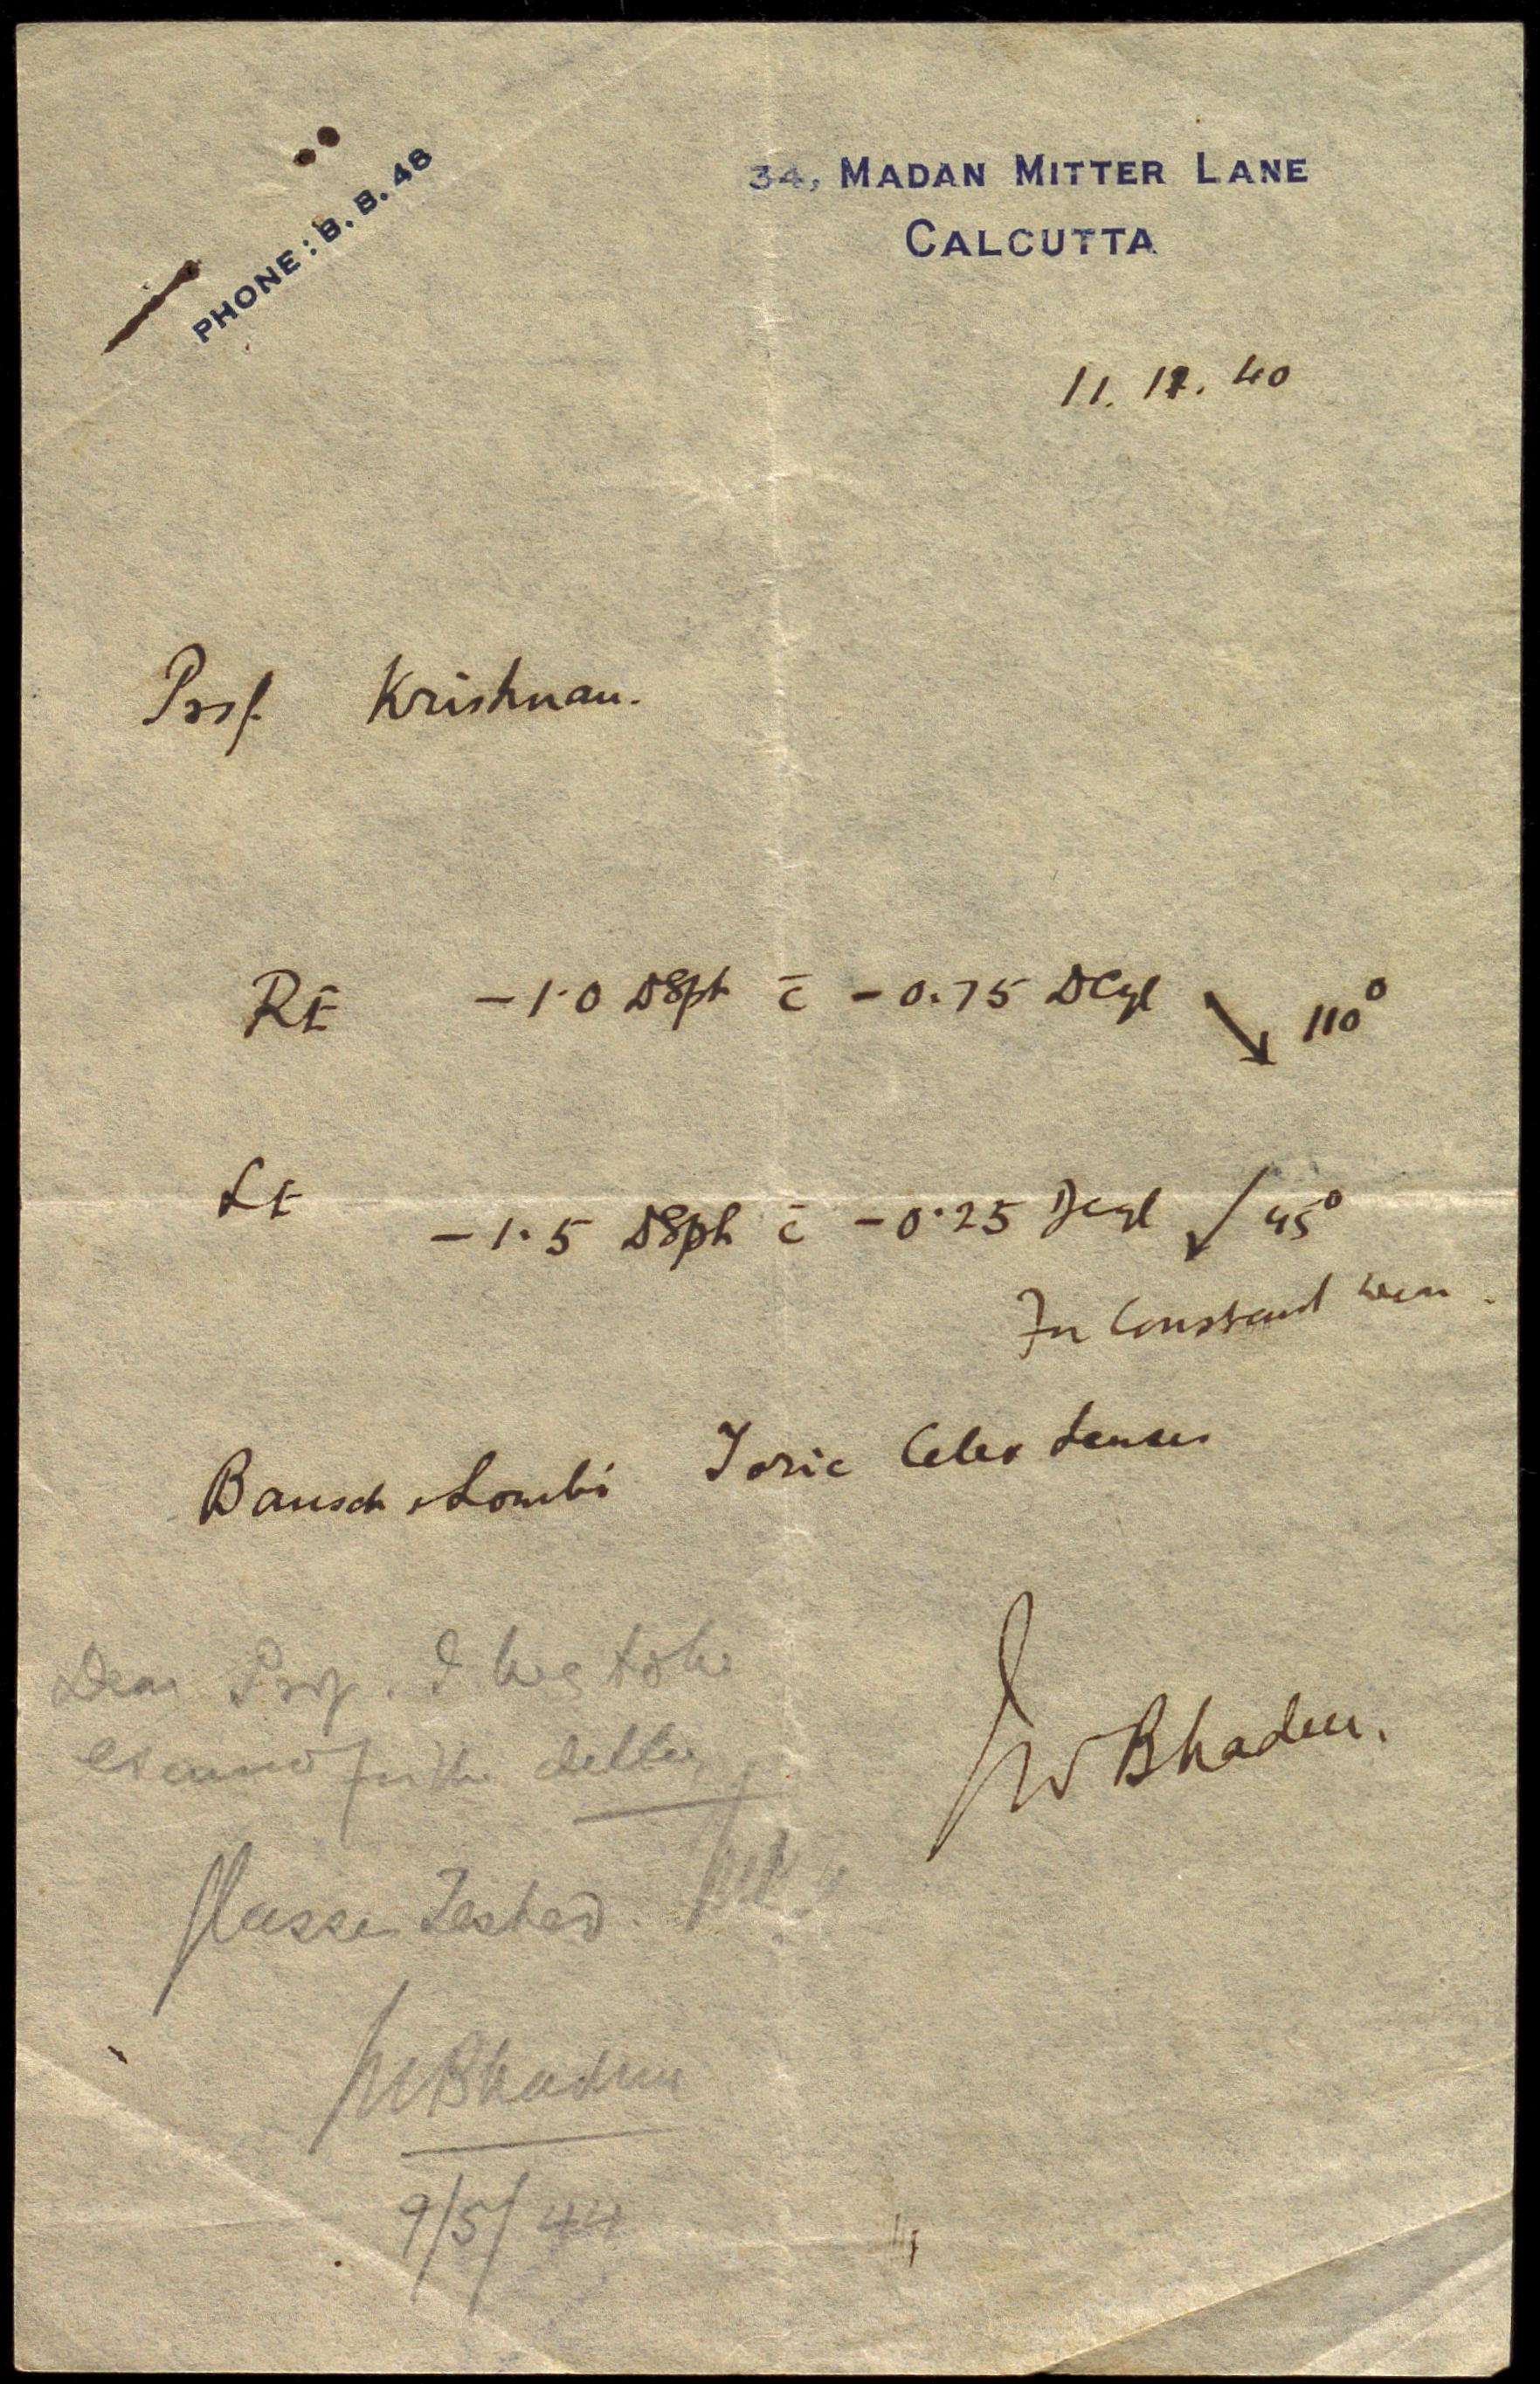 PHONE: B. B. 48
34, MADAN MITTER LANE
CALCUTTA
11. 12. 40
Prof. Krishnan.
RE -1.0 DSph c̄ -0.75 DCyl ↘ 110°
LE -1.5 DSph c̄ -0.25 DCyl ↙ 45°
For Constant wear.
Bausch & Lomb's Toric Lenses
Bhaduri.
Dear Prof. I
Glasses Tested.
Bhaduri
9/5/44